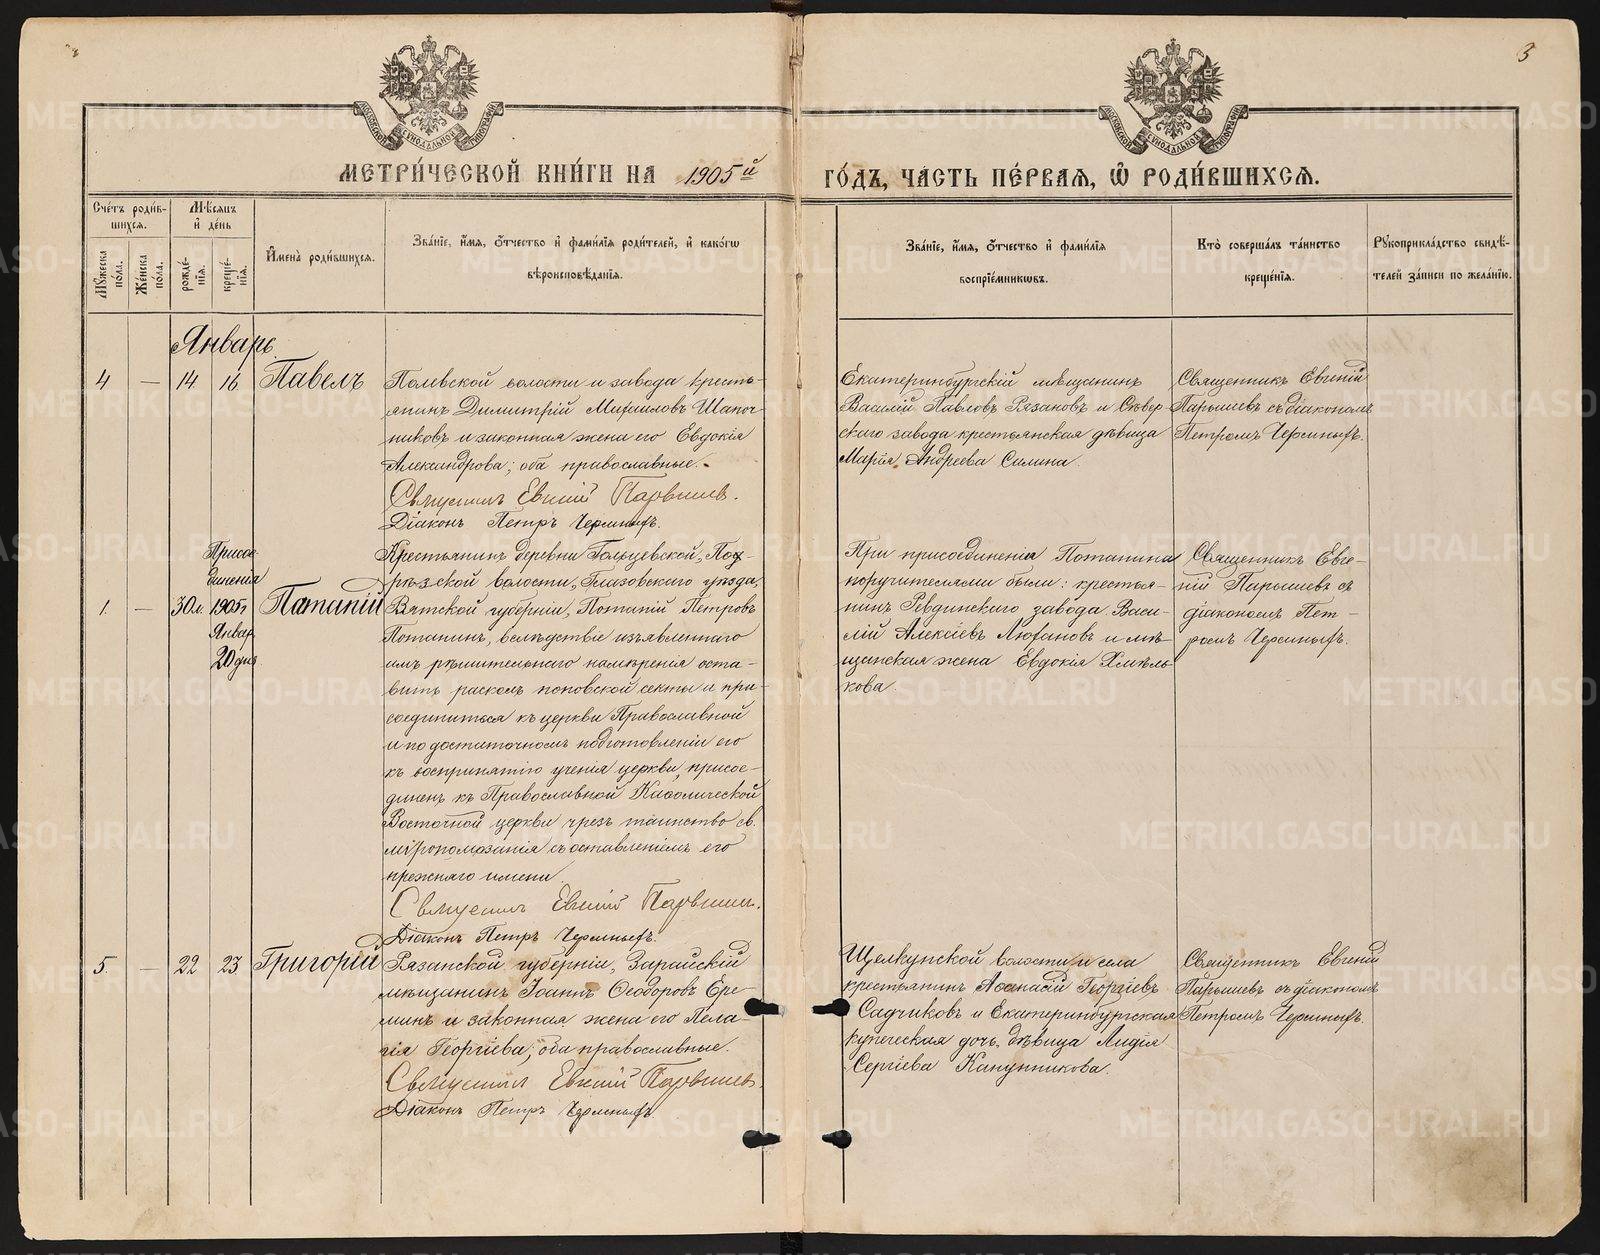 3
МОСКОВСКОЙ СѴНОДАЛЬНОЙ ТИПОГРАФІИ
МОСКОВСКОЙ СѴНОДАЛЬНОЙ ТИПОГРАФІИ
МЕТРИ́ЧЕСКОЙ КНИ́ГИ НА 1905й ГО́ДЪ, ЧАСТЬ ПЕ́РВАЯ, Ѽ РОДИ́ВШИХСѦ.
Сче́тъ роди́в-
шихсѧ.
Мꙋжеска по́ла.
Же́нска по́ла.
Мѣсѧцъ
и҆ де́нь
рожде́-
нїѧ.
креще́-
нїѧ.
И҆мена̀ роди́вшихсѧ.
Зва́нїе, и҆́мѧ, ѻ҆́тчество и҆ фами́лїѧ роди́телей, и҆ како́гѡ
вѣроисповѣ́данїѧ.
Зва́нїе, и҆́мѧ, ѻ҆́тчество и҆ фами́лїѧ
воспрїе́мникѡвъ.
Кто̀ соверша́лъ та́инство
креще́нїѧ.
Рꙋкоприкла́дство свидѣ́-
телей за́писи по жела́нїю.
Январь.
4 — 14 16 Павелъ
Полевской волости и завода кресть-
янинъ Димитрій Михаиловъ Шапоч-
никовъ и законная жена его Евдокія
Александрова; оба православные.
Священникъ Евгеній Парышевъ.
Діаконъ Петръ Черемныхъ.
Екатеринбургскій мѣщанинъ
Василій Павловъ Рязановъ и Сѣвер-
скаго завода крестьянская дѣвица
Марія Андреева Силина.
Священникъ Евгеній
Парышевъ съ діакономъ
Петромъ Черемныхъ.
1. — 30 л. Присое-
динения
1905 г.
Январ.
20 дня
Потапій
Крестьянинъ деревни Гольцевской,
волости, Глазовскаго уѣзда,
Вятской губерніи, Потапій Петровъ
Потанинъ, вслѣдствіе изъявленнаго
имъ рѣшительнаго намѣренія оста-
вить расколъ поповской секты и при-
соединиться къ церкви Православной
и по достаточномъ подготовленіи его
къ воспринятію ученія церкви, присое-
диненъ къ Православной Каѳолической
Восточной церкви чрезъ таинство св.
мѵропомазанія съ оставленіемъ его
прежняго имени.
Священникъ Евгеній Парышевъ.
Діаконъ Петръ Черемныхъ.
При присоединеніи Потанина
поручителями были: крестья-
нинъ Ревдинскаго завода Васи-
лій Алексіевъ Люхановъ и мѣ-
щанская жена Евдокія Хмѣль-
кова
Священникъ Евге-
ній Парышевъ съ
діакономъ Пет-
ромъ Черемныхъ.
5. — 22 23 Григорій
Рязанской губерніи, Зарайскій
мѣщанинъ Іоаннъ Ѳеодоровъ Ере-
минъ и законная жена его Пела-
гія Георгіева; оба православные.
Священникъ Евгеній Парышевъ.
Діаконъ Петръ Черемныхъ
Щелкунской волости и села
крестьянинъ Аѳанасій Георгіевъ
Садчиковъ и Екатеринбургская
купеческая дочь, дѣвица Лидія
Сергіева Канунникова.
Священникъ Евгеній
Парышевъ съ діакономъ
Петромъ Черемныхъ.
METRIKI.GASO-URAL.RU